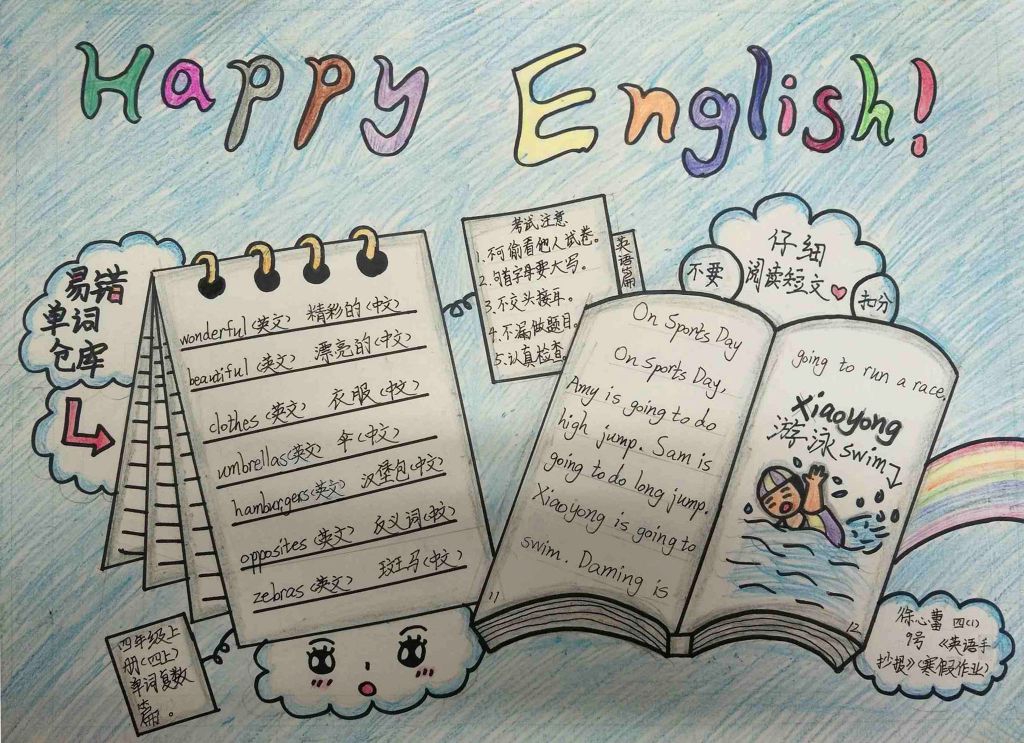 Happy English!
易错
单词
仓库
wonderful(英文) 精彩的(中文)
beautiful(英文) 漂亮的(中文)
clothes(英文) 衣服(中文)
umbrellas(英文) 伞(中文)
hamburgers(英文) 汉堡包(中文)
opposites(英文) 反义词(中文)
zebras(英文) 斑马(中文)
四年级上
册(四上)
单词复数
篇。
考试注意
1.不可偷看他人试卷。
2.句首字母要大写。
3.不交头接耳。
4.不漏做题目。
5.认真检查。
英语篇
不要
仔细
阅读短文
扣分
On Sports Day
On Sports Day,
Amy is going to do
high jump. Sam is
going to do long jump.
Xiaoyong is going to
swim. Daming is
11
going to run a race.
Xiaoyong
游泳swim
12
徐心蕾 四(1)
9号 《英语手
抄报》(寒假作业)